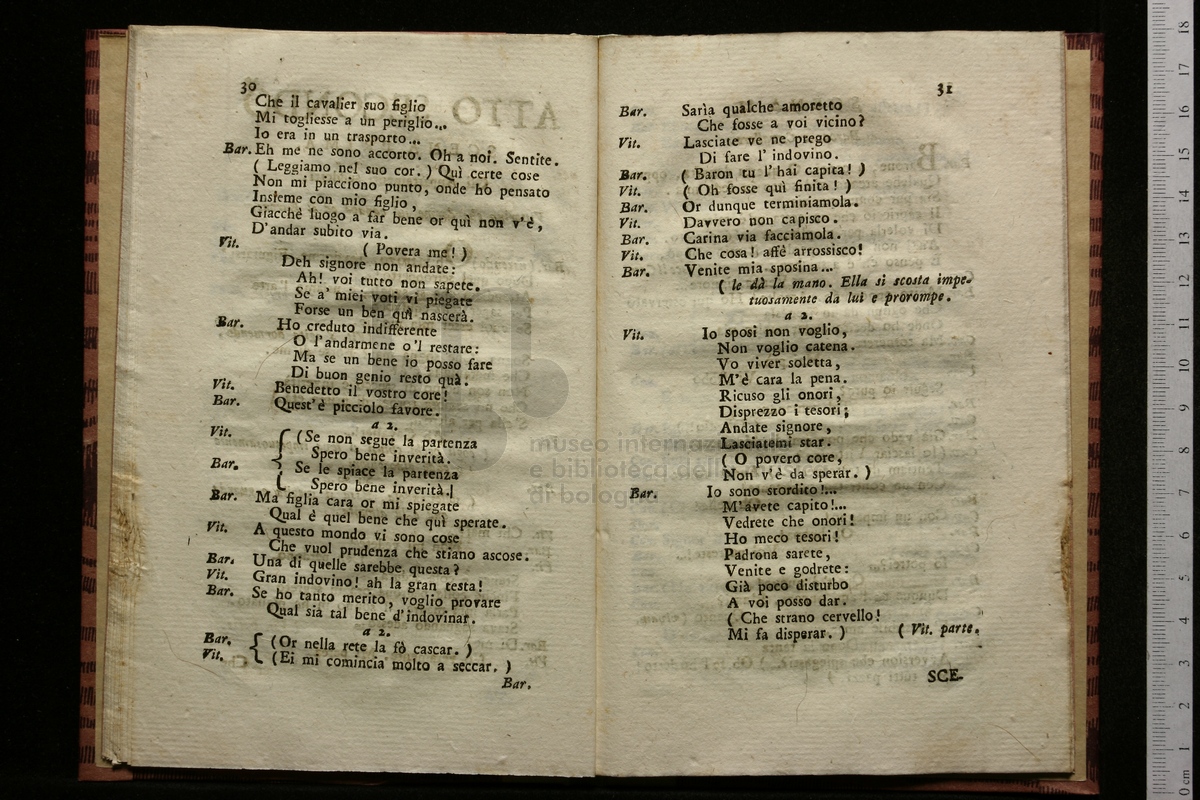 30
Che il cavalier suo figlio
Mi togliesse a un periglio...
Io era in un trasporto...
Bar. Eh me ne sono accorto. Oh a noi. Sentite.
( Leggiamo nel suo cor. ) Quì certe cose
Non mi piacciono punto, onde hò pensato
Insieme con mio figlio,
Giacchè luogo a far bene or quì non v'è,
D'andar subito via.
Vit. ( Povera me! )
Deh signore non andate:
Ah! voi tutto non sapete.
Se a' miei voti vi piegate
Forse un ben quì nascerà.
Bar. Ho creduto indifferente
O l'andarmene o'l restare:
Ma se un bene io posso fare
Di buon genio resto quà.
Vit. Benedetto il vostro core!
Bar. Quest'è picciolo favore.
a 2.
Vit. (Se non segue la partenza
Spero bene inverità.
Bar. Se le spiace la partenza
Spero bene inverità.)
Bar. Ma figlia cara or mi spiegate
Qual è quel bene che quì sperate.
Vit. A questo mondo vi sono cose
Che vuol prudenza che stiano ascose.
Bar. Una di quelle sarebbe questa?
Vit. Gran indovino! ah la gran testa!
Bar. Se ho tanto merito, voglio provare
Qual sia tal bene d'indovinar.
a 2.
Bar. (Or nella rete la fò cascar. )
Vit. (Ei mi comincia molto a seccar. )
Bar.
31
Bar. Sarìa qualche amoretto
Che fosse a voi vicino?
Vit. Lasciate ve ne prego
Di fare l' indovino.
Bar. ( Baron tu l' hai capita! )
Vit. ( Oh fosse quì finita! )
Bar. Or dunque terminiamola.
Vit. Davvero non capisco.
Bar. Carina via facciamola.
Vit. Che cosa! affè arrossisco!
Bar. Venite mia sposina...
( le dà la mano. Ella si scosta impe-
tuosamente da lui e prorompe.
a 2.
Vit. Io sposi non voglio,
Non voglio catena.
Vo viver soletta,
M'è cara la pena.
Ricuso gli onori,
Disprezzo i tesori;
Andate signore,
Lasciatemi star.
( O povero core,
Non v'è da sperar. )
Bar. Io sono stordito!...
M'avete capito!...
Vedrete che onori!
Ho meco tesori!
Padrona sarete,
Venite e godrete:
Già poco disturbo
A voi posso dar.
( Che strano cervello!
Mi fa disperar. ) ( Vit. parte.
SCE-